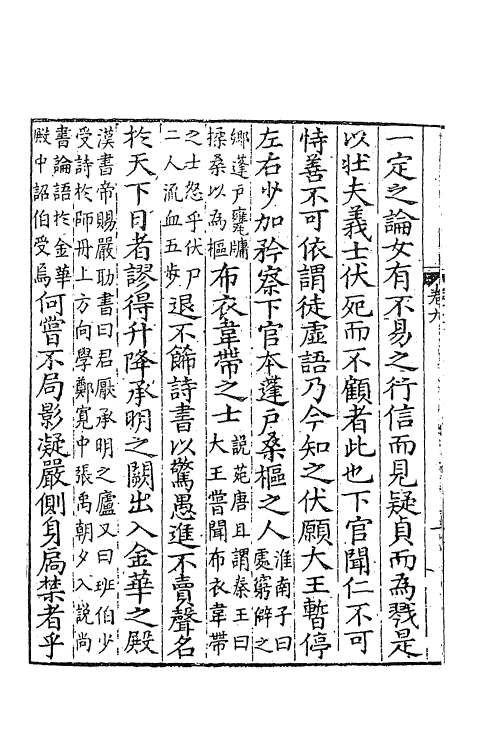 卷九
一定之論女有不易之行信而見疑貞而為戮是
以壯夫義士伏死而不顧者此也下官聞仁不可
恃善不可依謂徒虛語乃今知之伏願大王暫停
左右少加矜察下官本蓬戶桑樞之人淮南子曰處窮僻之
鄉蓬戶甕牖揉桑以為樞布衣韋帶之士說苑唐且謂秦王曰大王嘗聞布衣韋帶
之士怨乎伏尸二人流血五步退不飾詩書以驚愚進不賣聲名
於天下日者謬得升降承明之闕出入金華之殿
漢書帝賜嚴助書曰君厭承明之廬又曰班伯少受詩於師丹上方向學鄭寬中張禹朝夕入說尚
書論語於金華殿中詔伯受焉何嘗不局影凝嚴側身扃禁者乎